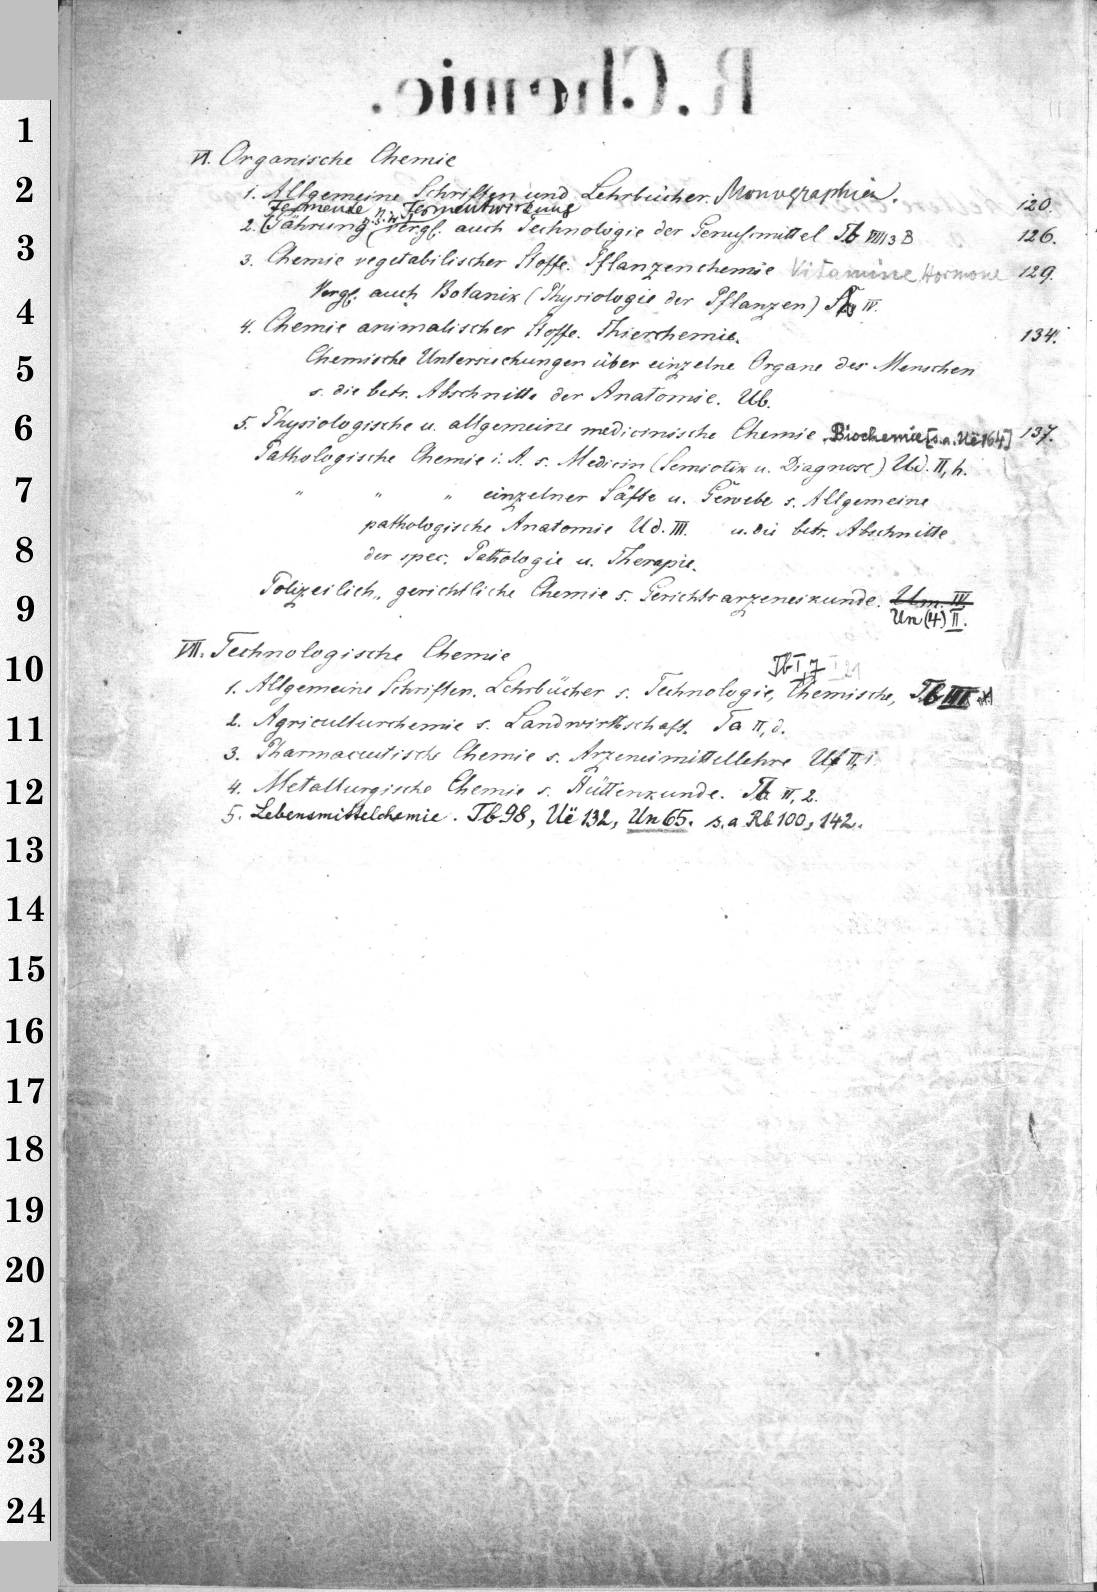 R. Chemie.
VI. Organische Chemie
1. Allgemeine Schriften und Lehrbücher. Monographien. 120.
Fermente u. Fermentwirkung
2. Gährung (vergl. auch Technologie der Genussmittel Tb VIII 3 B 126.
3. Chemie vegetabilischer Stoffe. Pflanzenchemie Vitamine, Hormone 129.
Vergl. auch Botanik (Physiologie der Pflanzen) IV.
4. Chemie animalischer Stoffe. Thierchemie. 134.
Chemische Untersuchungen über einzelne Organe des Menschen
s. die betr. Abschnitte der Anatomie. Ub.
5. Physiologische u. allgemeine medicinische Chemie. Biochemie [s.a. Uë 164] 137.
Pathologische Chemie i. A. s. Medicin (Semiotik u. Diagnose) Ud. II, h.
" " " einzelner Säfte u. Gewebe s. Allgemeine
pathologische Anatomie Ud. III. u. die betr. Abschnitte
der spec. Pathologie u. Therapie.
Polizeilich-, gerichtliche Chemie s. Gerichtsarzeneikunde. Um. IV.
Un (4) II.
VII. Technologische Chemie
Tb I, 7
1. Allgemeine Schriften. Lehrbücher s. Technologie, Chemische, Tb III
2. Agriculturchemie s. Landwirthschaft. Ta II, d.
3. Pharmaceutische Chemie s. Arzeneimittellehre Uf II, i.
4. Metallurgische Chemie s. Hüttenkunde. Tb II, 2.
5. Lebensmittelchemie. Tb 98, Uë 132, Un 65. s. a Rb 100, 142.
1
2
3
4
5
6
7
8
9
10
11
12
13
14
15
16
17
18
19
20
21
22
23
24